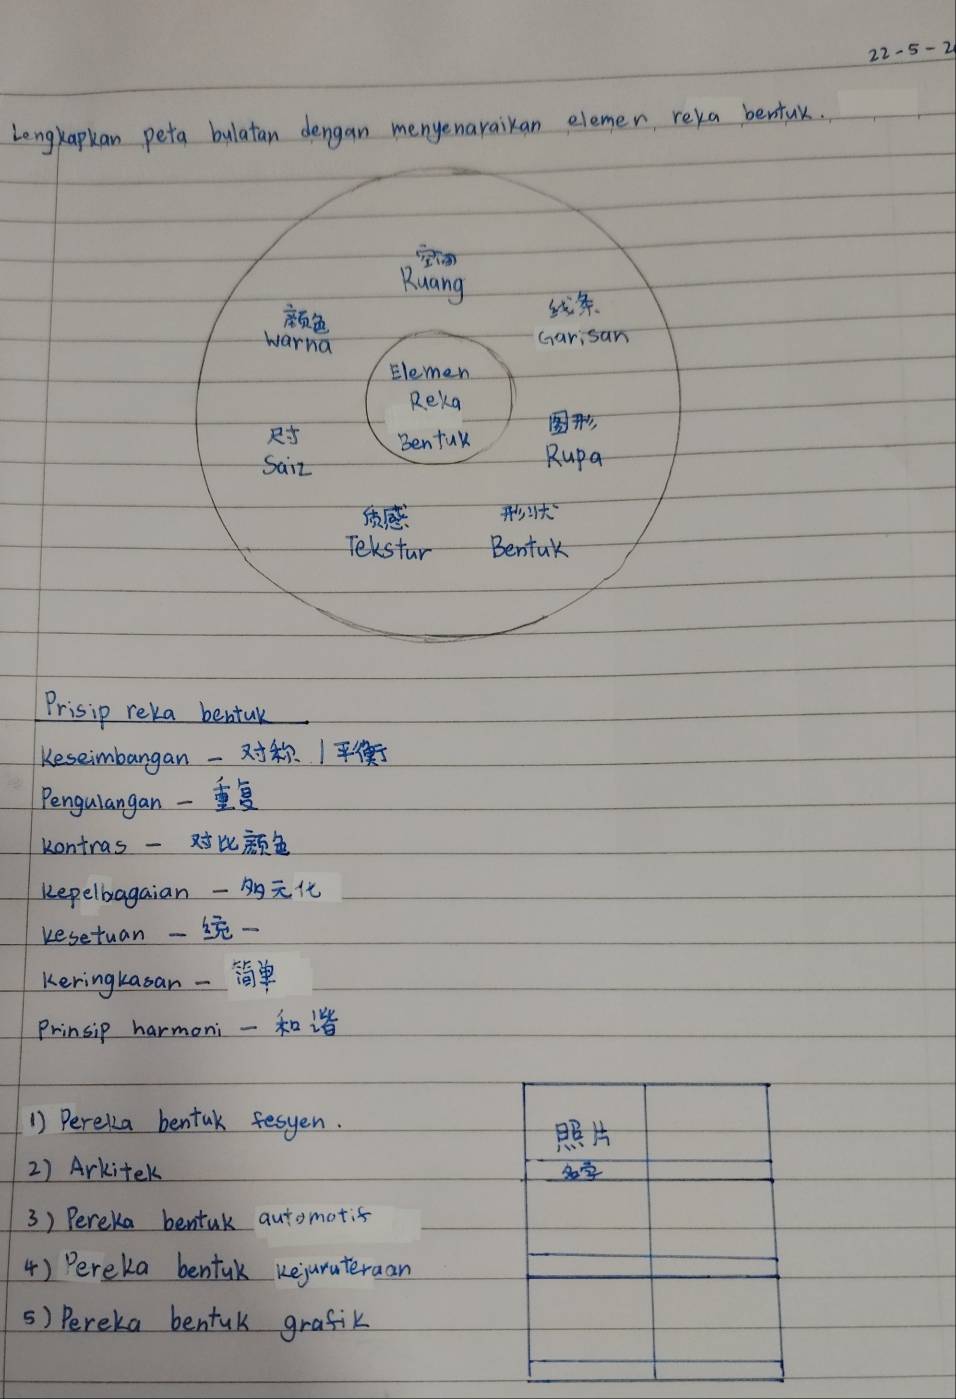 22-5-2
Lengkapkan peta bulatan dengan menyenaraikan elemen reka bentuk.
空间
Ruang
颜色
Warna
线条
Garisan
Elemen
Reka
Bentuk
尺寸
Saiz
图形
Rupa
质感
Tekstur
形状
Bentuk
Prisip reka bentuk
Keseimbangan - 对称 / 平衡
Pengulangan - 重复
Kontras - 对比颜色
Kepelbagaian - 多元化
Kesetuan - 统一
Keringkasan - 简单
Prinsip harmoni - 和谐
1) Pereka bentuk fesyen.
2) Arkitek
3) Pereka bentuk automotif
4) Pereka bentuk Kejuruteraan
5) Pereka bentuk grafik
照片
名字